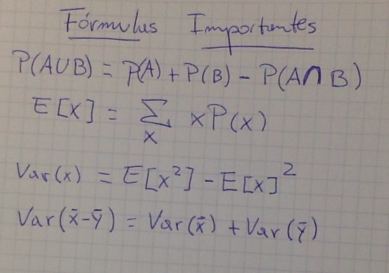 Fórmulas Importantes
P(A∪B) = P(A) + P(B) - P(A∩B)
E[x] = Σ_x xP(x)
Var(x) = E[x²] - E[x]²
Var(x̄-ȳ) = Var(x̄) + Var(ȳ)